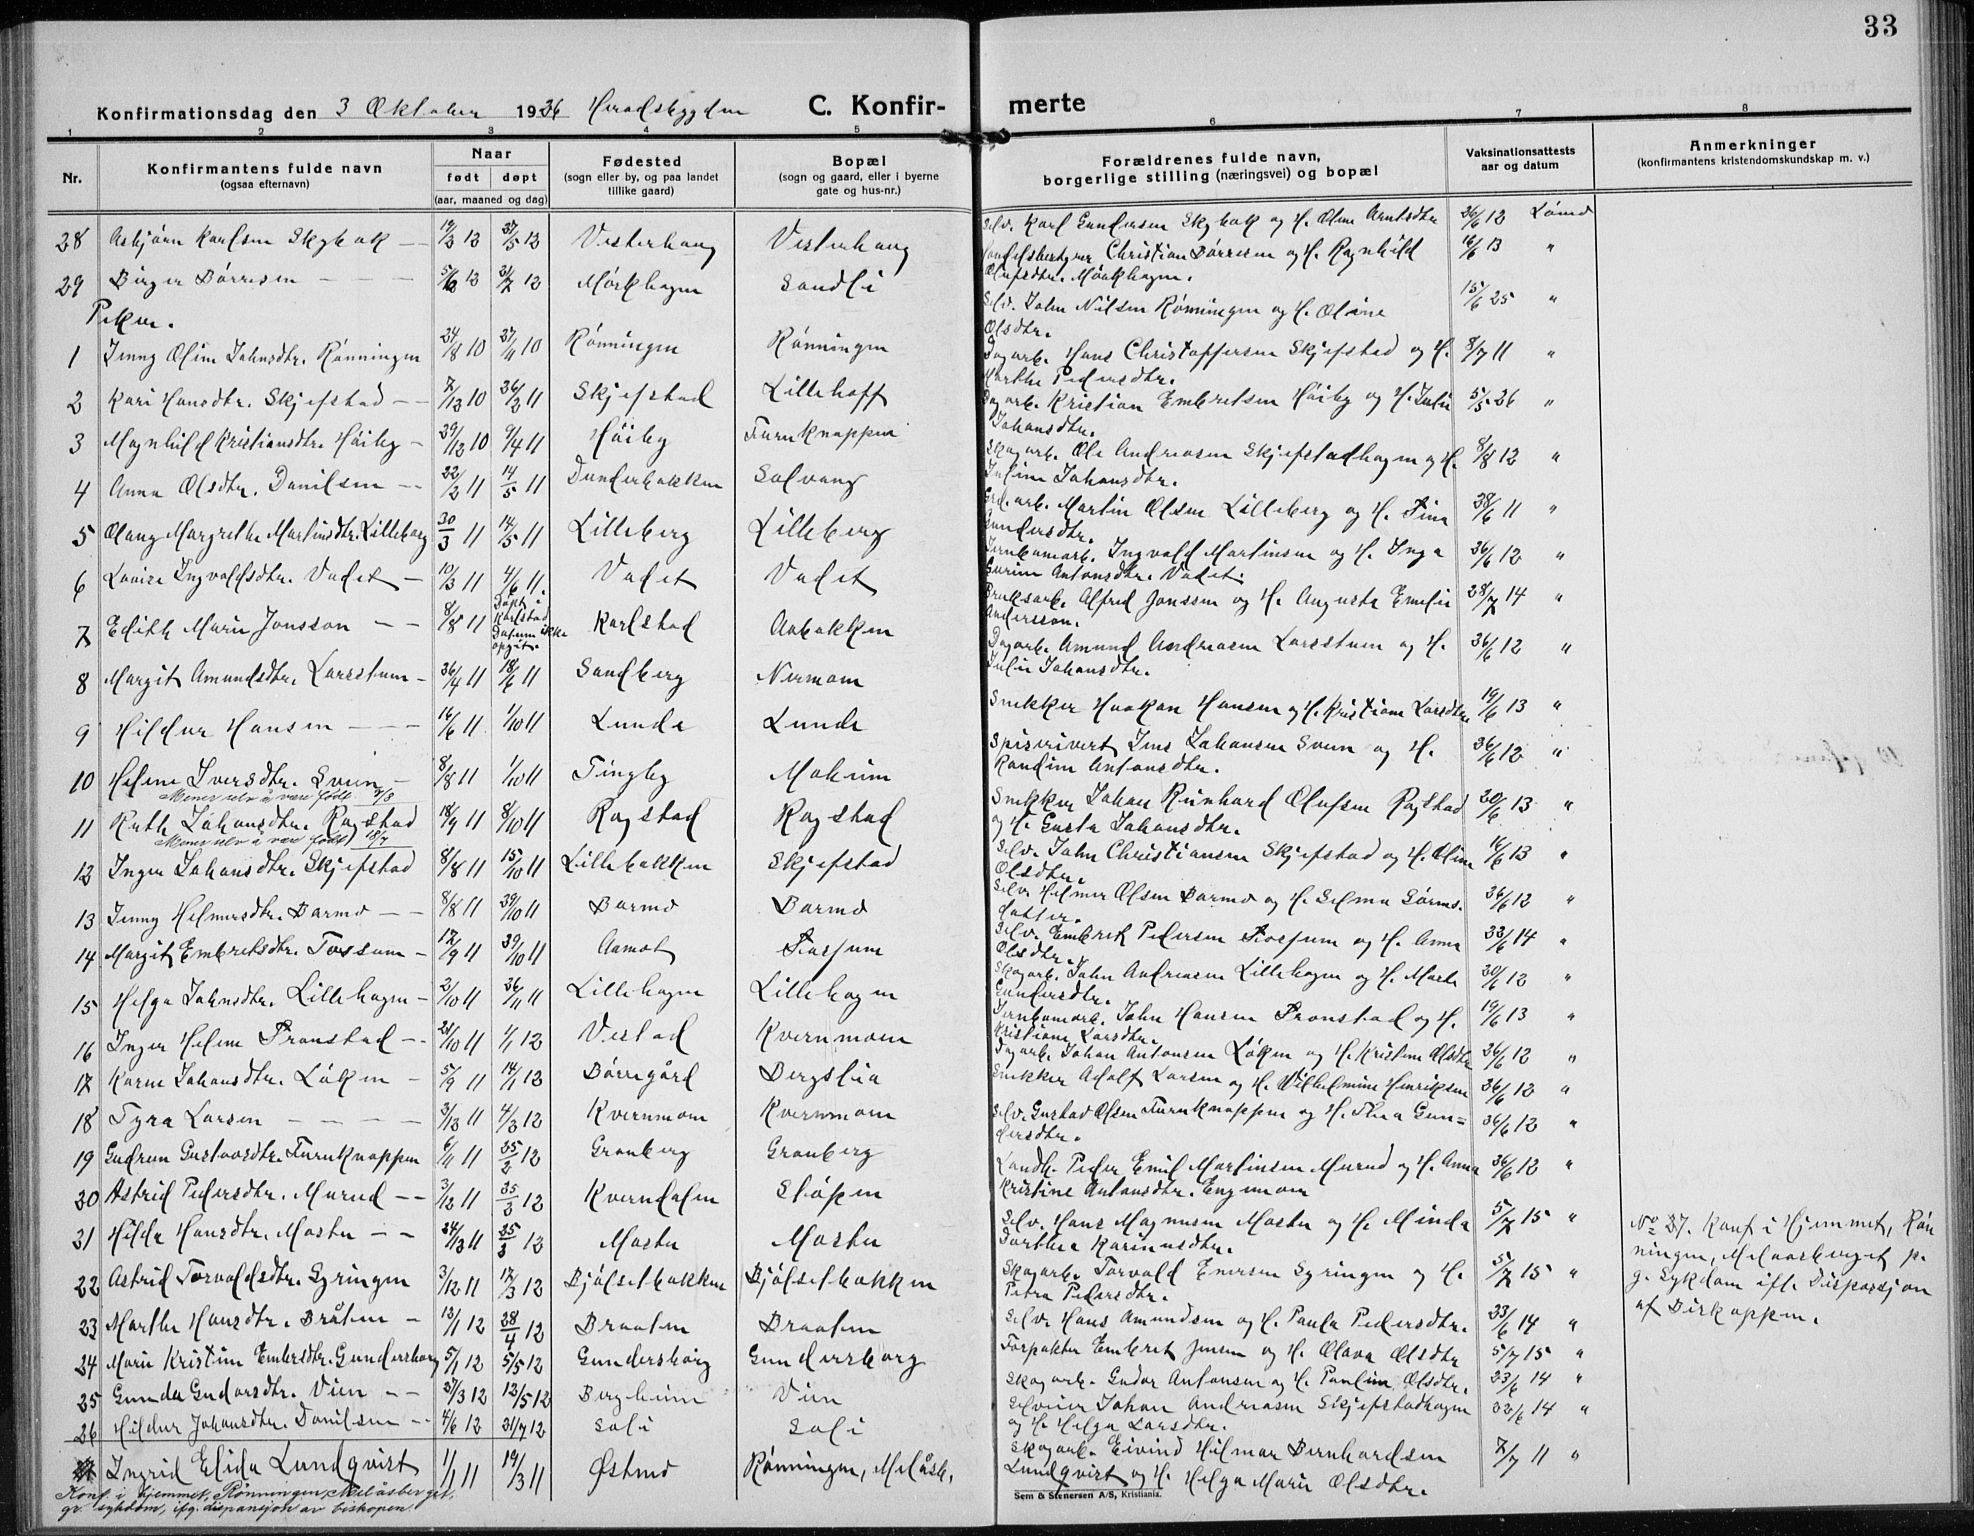 33
Konfirmationsdag den 3 Oktober 1926 Heradsbygden C. Konfir- merte
1 2 3 4 5 6 7 8
Nr. Konfirmantens fulde navn (ogsaa efternavn) Naar født døpt (aar, maaned og dag) Fødested (sogn eller by, og paa landet tillike gaard) Bopæl (sogn og gaard, eller i byerne gate og hus-nr.) Forældrenes fulde navn, borgerlige stilling (næringsvei) og bopæl Vaksinationsattests aar og datum Anmerkninger (konfirmantens kristendomskundskap m. v.)
28 Asbjørn Karlsen Skybak Vesterhaug Vesterhaug Selv. Karl Gundersen Skybak og H. Oline Arntsdtr 26/6 12
29 Birger Børresen 31/7 12 Mørkhagen Sandli Christian Børresen og H. Ragnhild Olufsdtr. Mørkhagen. 16/6 13 "
Piker.
1 Jenny Oline Johnsdtr. Rønningen 24/8 10 27/11 10 Rønningen Rønningen Selv. John Nilsen Rønningen og H. Oline Olsdtr. 15/6 25 "
2 Kari Hansdtr. Skjefstad 7/12 10 26/2 11 Skjefstad Lillehoff Dagarb. Hans Christoffersen Skjefstad og H. Marthe Pedersdtr. 8/7 11 "
3 Magnhild Kristiansdtr. Høiby 29/12 10 9/4 11 Høiby Furuknappen Dagarb. Kristian Embretsen Høiby og H. Julie Johansdtr. 5/5 26 "
4 Anna Olsdtr. Danilsen 22/2 11 14/5 11 Dunderbakken Solvang Skogarb. Ole Andreasen Skjefstadhagen og H. Juline Johansdtr. 8/8 12 "
5 Olaug Margrethe Martinsdtr. Lilleberg 30/3 11 14/5 11 Lilleberg Lilleberg Martin Olsen Lilleberg og H. Tina Gundersdtr. 28/6 11 "
6 Lovise Ingvaldsdtr. Vadet 10/3 11 4/6 11 Vadet Vadet Jernbanearb. Ingvald Martinsen og H. Inga Gurine Antonsdtr. Vadet. 26/6 12 "
7 Edith Marie Jonsson 8/8 11 Døpt i Karlstad Datum ikke opgit. Karlstad Aabakken Bruksarb. Alfred Jonssen og H. Augusta Emelie Andersson. 28/7 14 "
8 Margit Amundsdtr. Larsstuen 26/4 11 18/6 11 Sandberg Nermoen Dagarb. Amund Andreasen Larsstuen og H. Julie Johansdtr. 26/6 12 "
9 Hildur Hansen 16/6 11 1/10 11 Lunde Lunde Snekker Haakon Hansen og H. Kristiane Larsdtr. 19/6 13 "
10 Helene Iversdtr. Sveen 8/8 11 1/10 11 Tingby Moheim Iver Johansen Sveen og H. Randine Antonsdtr. 26/6 12 "
Mener selv å være født
11 Ruth Johansdtr. Rogstad 18/9 11 8/10 11 Rogstad Rogstad Snekker Johan Reinhard Olufsen Rogstad og H. Gusta Johansdtr. 20/6 13 "
Mener selv å være født 18/7
12 Inger Johansdtr. Skjefstad 8/8 11 15/10 11 Lillebakken Skjefstad Selv. John Christiansen Skjefstad og H. Oline Olsdtr. 16/6 13 "
13 Jenny Helmersdtr. Barmo 8/8 11 29/10 11 Barmo Barmo Selv. Helmer Olsen Barmo og H. Selma Sørensdatter. 26/6 12 "
14 Margit Embretsdtr. Fossum 12/9 11 29/10 11 Aamot Fossum Selv. Embret Pedersen Fossum og H. Anna Olsdtr. 23/6 14 "
15 Helga Johnsdtr. Lillehagen 2/10 11 26/11 11 Lillehagen Lillehagen Skogarb. John Andreasen Lillehagen og H. Marte Gundersdtr. 20/6 12 "
16 Inger Helene Fronstad 21/10 11 1/1 12 Vestad Kvernmoen Jernbanearb. John Hansen Fronstad og H. Kristiane Larsdtr. 19/6 13 "
17 Karen Johansdtr. Løken 5/9 11 14/1 12 Børregård Bergslia Dagarb. Johan Antonsen Løken og H. Kristine Olsdtr 26/6 12 "
18 Tyra Larsen 3/12 11 4/2 12 Kvernmoen Kvernmoen Snekker Adolf Larsen og H. Vilhelmine Henriksen 26/6 12 "
19 Gudrun Gustavsdtr. Furuknappen 6/11 11 25/2 12 Granberg Granberg Selv. Gustav Olsen Furuknappen og H. Thea Gundersdtr. 26/6 12 "
20 Astrid Pedersdtr. Murud 3/12 11 25/3 12 Kverndalen Støpen Landh. Peder Emil Martinsen Murud og H. Anna Kristine Antonsdtr. Engemoen 26/6 12 "
21 Hilda Hansdtr. Moster 24/12 11 25/3 12 Moster Moster Selv. Hans Magnusen Moster og H. Minda Dorthea Karinusdtr. 5/7 15 "
22 Astrid Torvaldsdtr. Syringen 3/12 11 17/3 12 Bjølsetbakken Bjølsetbakken Skogarb. Torvald Enersen Syringen og H. Petra Pedersdtr. 5/7 15 "
23 Marthe Hansdtr. Bråten 13/1 12 28/4 12 Braaten Braaten Selv. Hans Amundsen og H. Paula Pedersdtr. 23/6 14 "
24 Marie Kristine Embretsdtr. Gundersborg 5/1 12 5/5 12 Gundersborg Gundersborg Forpakter Embret Jensen og H. Olava Olsdtr 5/7 15 "
25 Gunda Gudorsdtr. Vien 27/3 12 12/5 12 Bergheim Vien Skogarb. Gudor Antonsen og H. Pauline Olsdtr. 23/6 14 "
26 Hildur Johansdtr. Danilsen 4/6 12 21/7 12 Soli Soli Selveier Johan Andreasen Skjefstadhagen og H. Helga Larsdtr. 23/6 14 "
Ingrid Elida Lundqvist 1/1 11 19/3 11 Østmo Rønningen, Melåsb. Skogarb. Eivind Hilmar Bernhardsen Lundqvist og H. Helga Marie Olsdtr. 7/7 11 "
Konf. i hjemmet, Rønningen, Melåsberget, gr. sykdom, ifg. dispensjon av biskopen.
No 27. Konf i Hjemmet, Røn
ningen, Melaasberget p.
g. Sykdom ifl. Dispensjon
af Biskoppen.
Sem & Stenersen A/S, Kristiania.